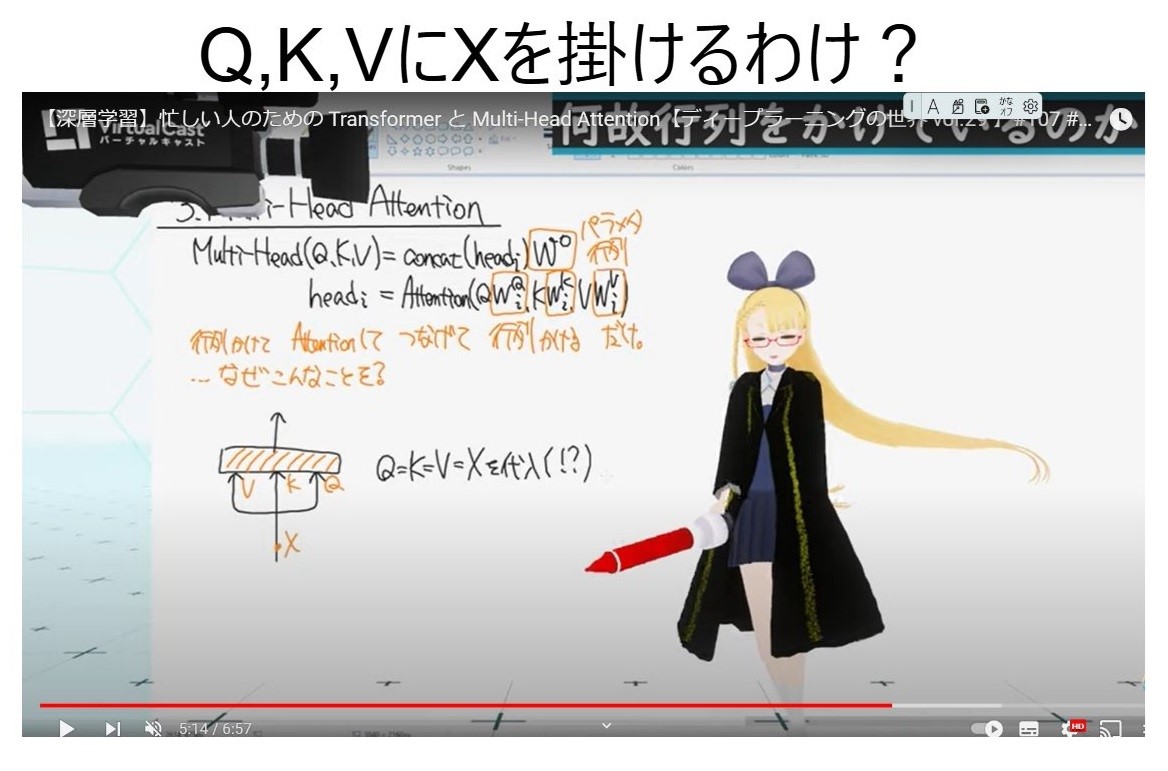 Q,K,VにXを掛けるわけ？
【深層学習】忙しい人のための Transformer と Multi-Head Attention【ディープラーニングの世界
#107 #...
何故行列をかけているのか
VirtualCast
バーチャルキャスト
Shapes
Colors
Head Attention
Multi-Head(Q,K,V)=concat(headi)W^O パラメタ
行列
headi = Attention(QWi^Q,KWi^K,VWi^V)
行列かけて Attentionして つなげて 行列かける だけ。
… なぜこんなことを?
Q=K=V=Xを代入(!?)
V K Q
X
5:14 / 6:57
HD